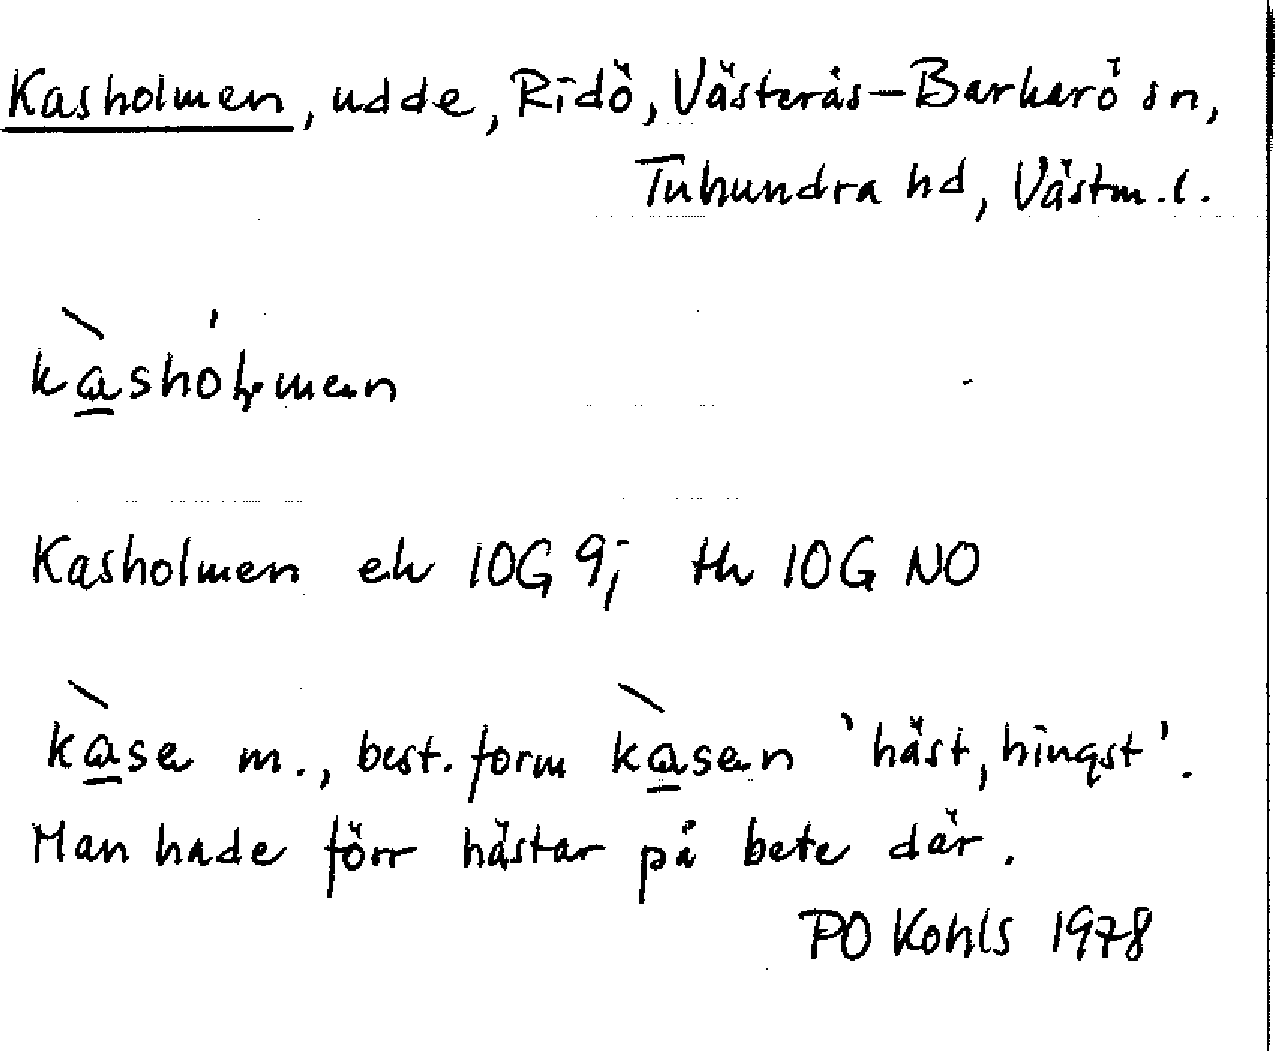 Kasholmen, udde, Ridö, Västerås-Barkarö sn,
Tuhundra hd, Västm. l.
kàshólmen
Kasholmen ek 10G 9j th 10G NO
kàse m., best. form kàsen 'häst, hingst'.
Man hade förr hästar på bete där.
PO Kohls 1978